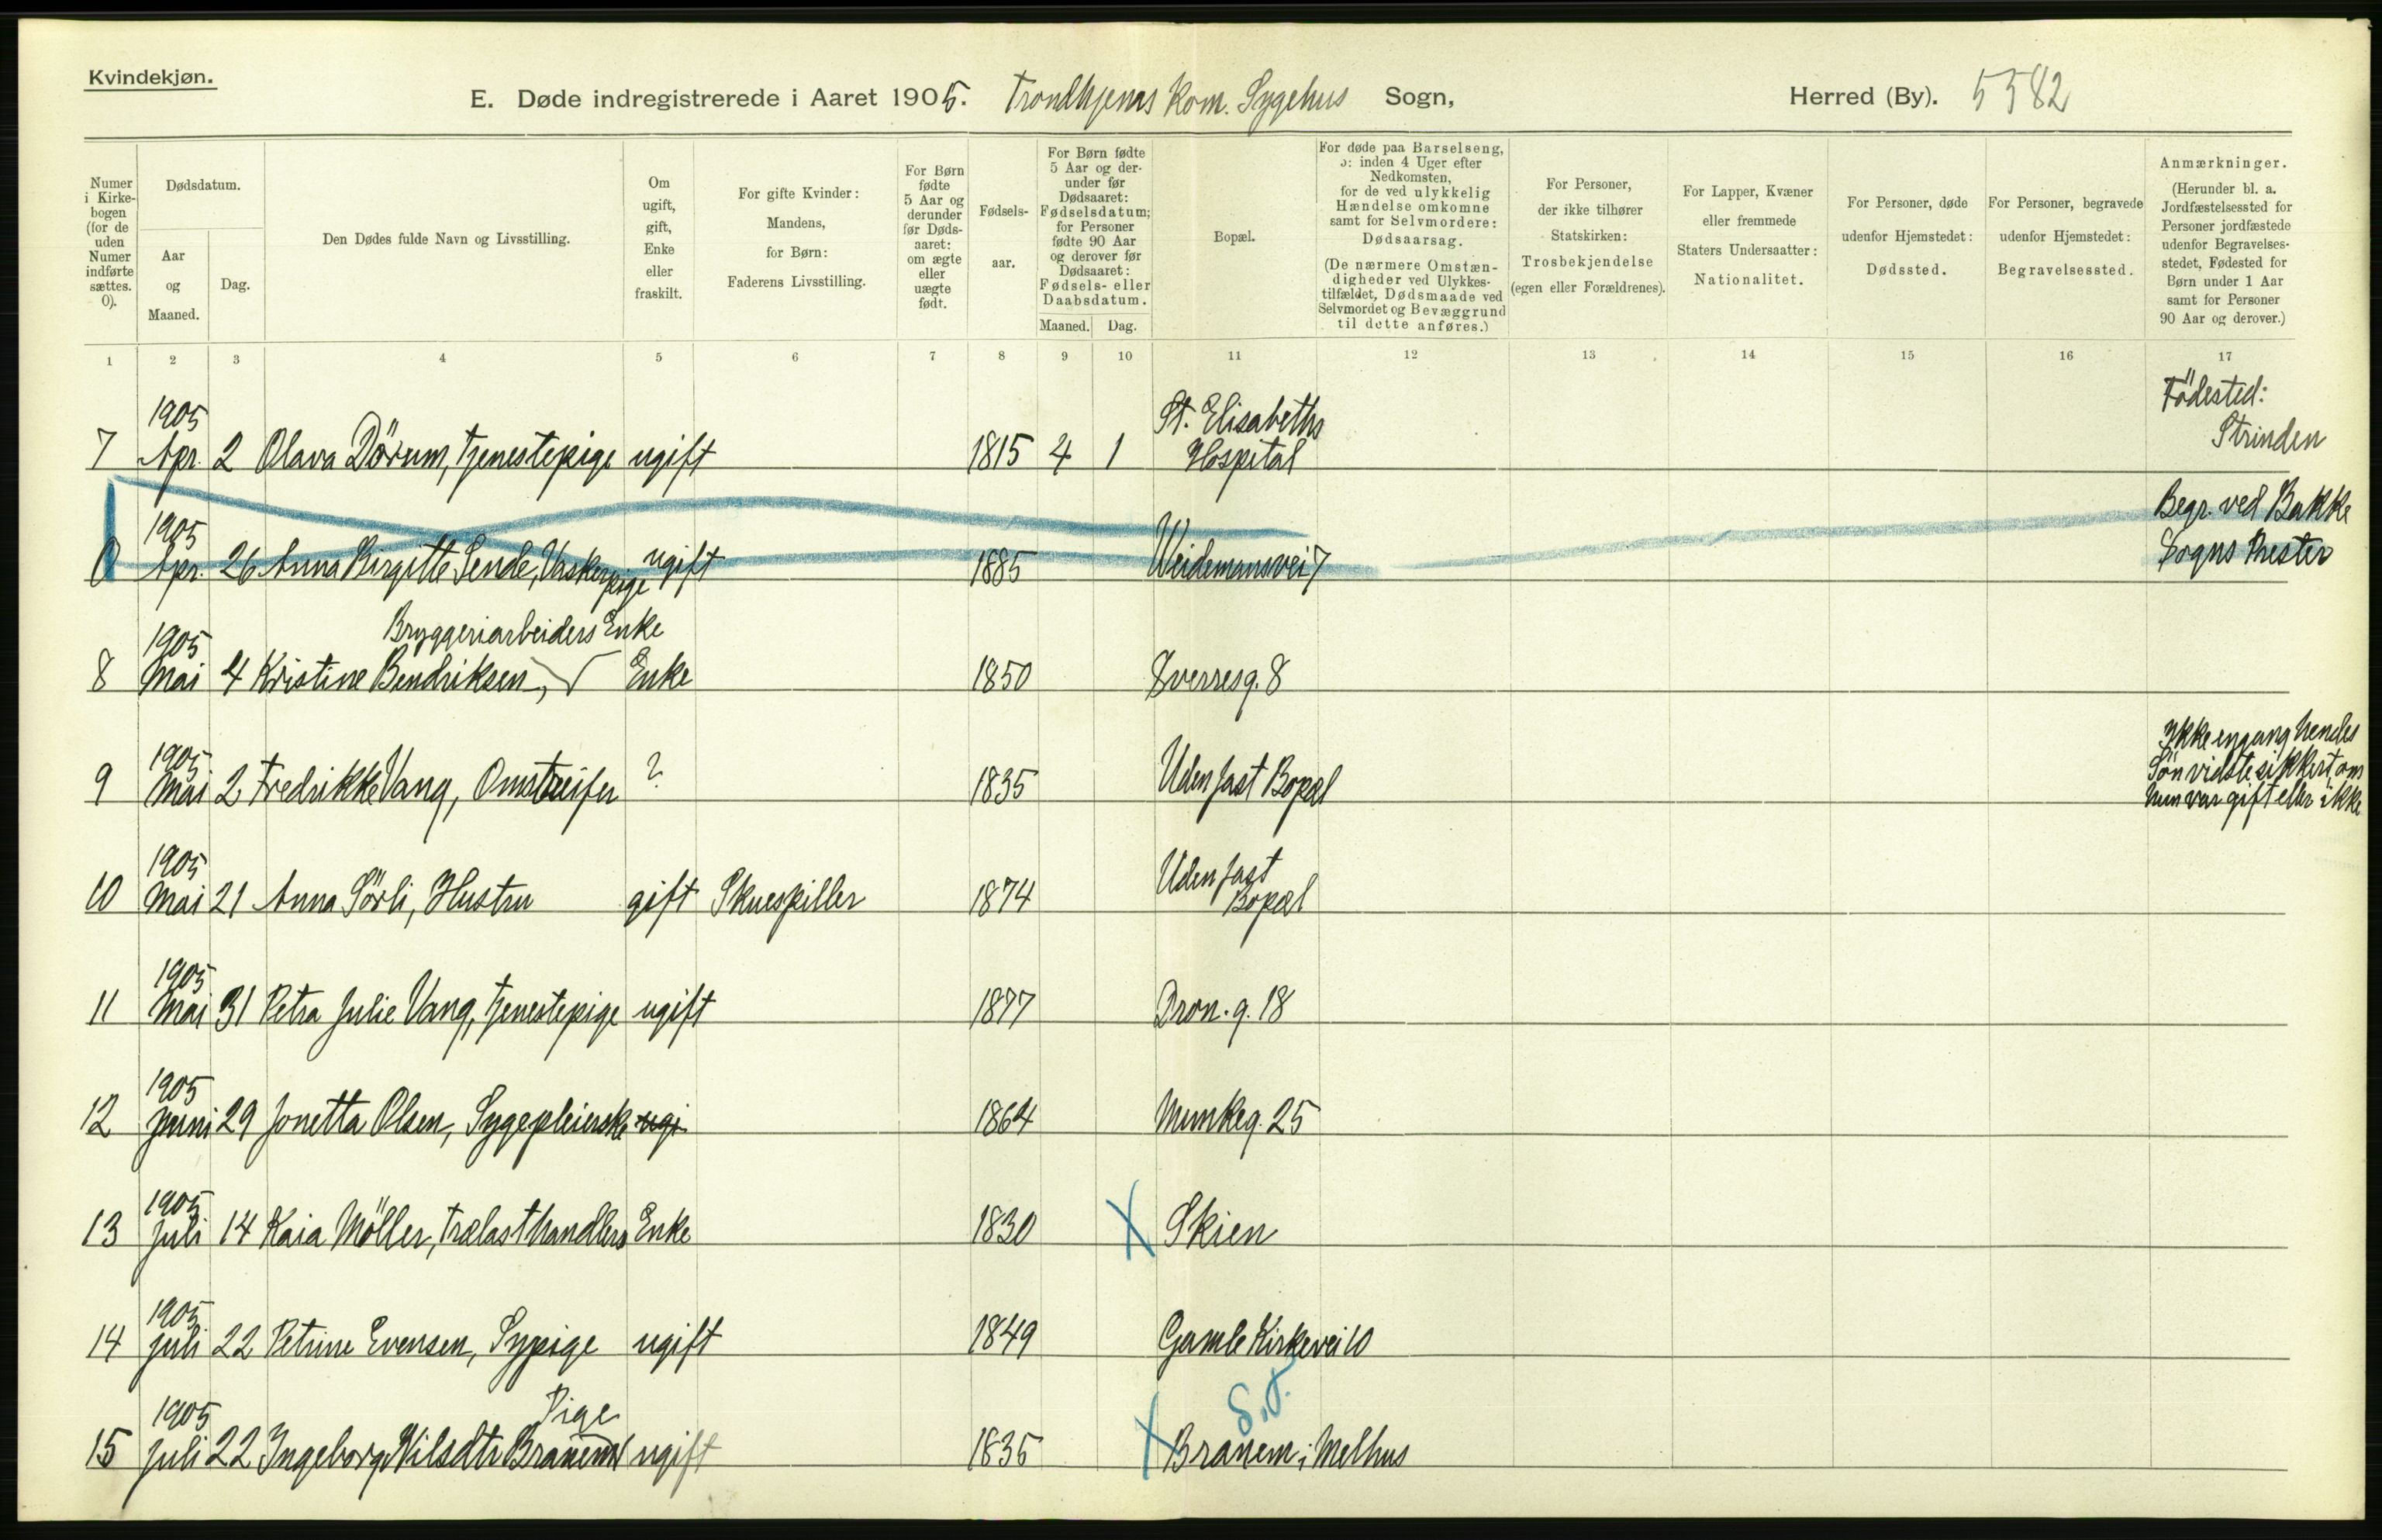 Kvindekjøn.
E. Døde indregistrerede i Aaret 1905. Trondhjems Kom. Sygehus Sogn, Herred (By). 5582
Numer i Kirke-bogen (for de uden Numer indførte sættes. 0).
Dødsdatum.
Aar og Maaned.
Dag.
Den Dødes fulde Navn og Livsstilling.
Om ugift, gift, Enke eller fraskilt.
For gifte Kvinder: Mandens, for Børn: Faderens Livsstilling.
For Børn fødte 5 Aar og derunder før Døds-aaret: om ægte eller uægte født.
Fødsels-aar.
For Børn fødte 5 Aar og der-under før Dødsaaret: Fødselsdatum; for Personer fødte 90 Aar og derover før Dødsaaret: Fødsels- eller Daabsdatum.
Maaned. Dag.
Bopæl.
For døde paa Barselseng, ɔ: inden 4 Uger efter Nedkomsten, for de ved ulykkelig Hændelse omkomne samt for Selvmordere: Dødsaarsag. (De nærmere Omstæn-digheder ved Ulykkes-tilfældet, Dødsmaade ved Selvmordet og Bevæggrund til dette anføres.)
For Personer, der ikke tilhører Statskirken: Trosbekjendelse (egen eller Forældrenes).
For Lapper, Kvæner eller fremmede Staters Undersaatter: Nationalitet.
For Personer, døde udenfor Hjemstedet: Dødssted.
For Personer, begravede udenfor Hjemstedet: Begravelsessted.
Anmærkninger. (Herunder bl. a. Jordfæstelsessted for Personer jordfæstede udenfor Begravelses-stedet, Fødested for Børn under 1 Aar samt for Personer 90 Aar og derover.)
1 2 3 4 5 6 7 8 9 10 11 12 13 14 15 16 17
7 1905 Apr. 2 Olava Dörum, Tjenestepige ugift 1815 4 1 St. Elisabeths Hospital Födested: Strinden
0 1905 Apr. 26 Anna Birgitte Sende, Vaskerpige ugift 1885 Weidemansvei 7 Begr. ved Bakke Sogns Prester
Bryggeriarbeiders Enke
8 1905 Mai 4 Kristine Bendriksen, √ Enke 1850 Sverresg. 8
9 1905 Mai 2 Fredrikke Vang, Omstreifer ? 1835 Uden fast Bopæl Ikke engang hendes Sön vidste sikkert om hun var gift eller ikke
10 1905 Mai 21 Anna Sörli, Hustru gift Skuespiller 1874 Uden fast Bopæl
11 1905 Mai 31 Petra Julie Vang, Tjenestepige ugift 1877 Dron. g. 18
12 1905 Juni 29 Jonetta Olsen, Sygepleierske ugi 1864 Munkeg. 25
13 1905 Juli 14 Kaia Möller, Trælasthandlers Enke 1830 X Skien
14 1905 Juli 22 Petrine Evensen, Sypige ugift 1849 Gamle Kirkevei 10
Pige
15 1905 Juli 22 Ingeborg Nilsdtr Branem √ ugift 1835 X Branem i Melhus